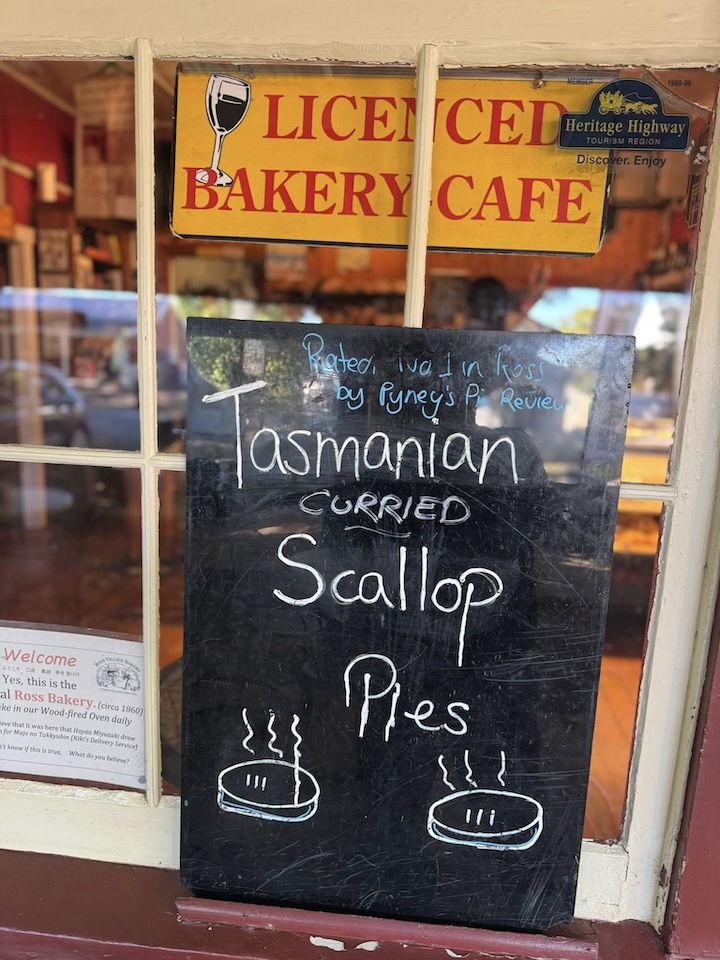 MEMBER 1998-99
LICENCED
BAKERY-CAFE
Heritage Highway
TOURISM REGION
Discover. Enjoy
Rated, No 1 in Ross
by Pyney's Pie Review
Tasmanian
CURRIED
Scallop
Pies
Welcome
ROSS VILLAGE BAKERY
Yes, this is the
al Ross Bakery. (circa 1860)
ke in our Wood-fired Oven daily
eve that it was here that Hayao Miyazaki drew
n for Majo no Takkyubin (Kiki's Delivery Service)
n't know if this is true, What do you believe?